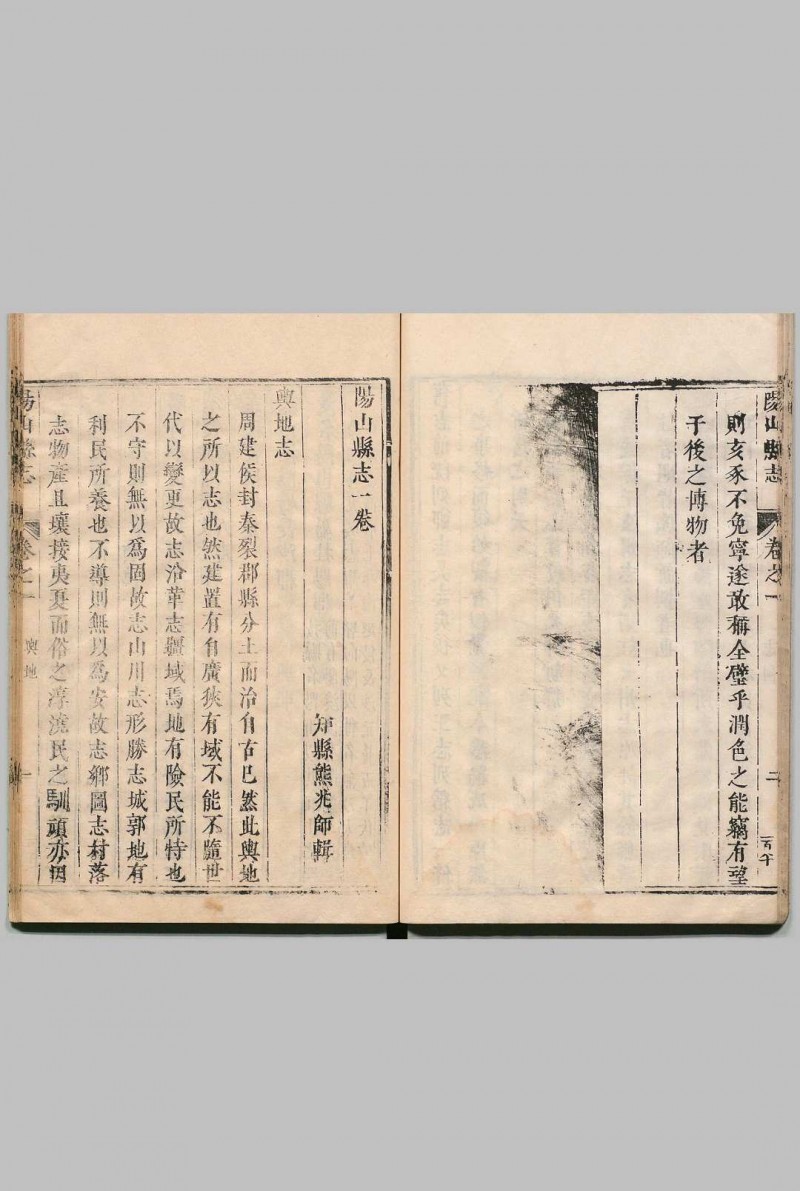 陽山縣志
卷之一
二
則亥豕不免寧遂敢稱全璧乎潤色之能竊有望
于後之博物者
陽山縣志一卷
知縣熊兆師輯
輿地志
周建侯封秦裂郡縣分土而治自古已然此輿地
之所以志也然建置有自廣狹有域不能不隨世
代以變更故志沿革志疆域焉地有險民所恃也
不守則無以爲固故志山川志形勝志城郭地有
利民所養也不導則無以爲安故志鄉圖志村落
志物產且壤接夷夏而俗之淳澆民之馴頑亦因
陽山縣志
卷之一
輿地
一